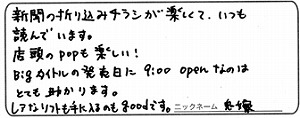 新聞の折り込みチラシが楽しくて、いつも
読んでいます。
店頭のpopも楽しい！
Bigタイトルの発売日に 9:00 openなのは
とても助かります。
レアなソフトも手に入るのもgoodです。ニックネーム